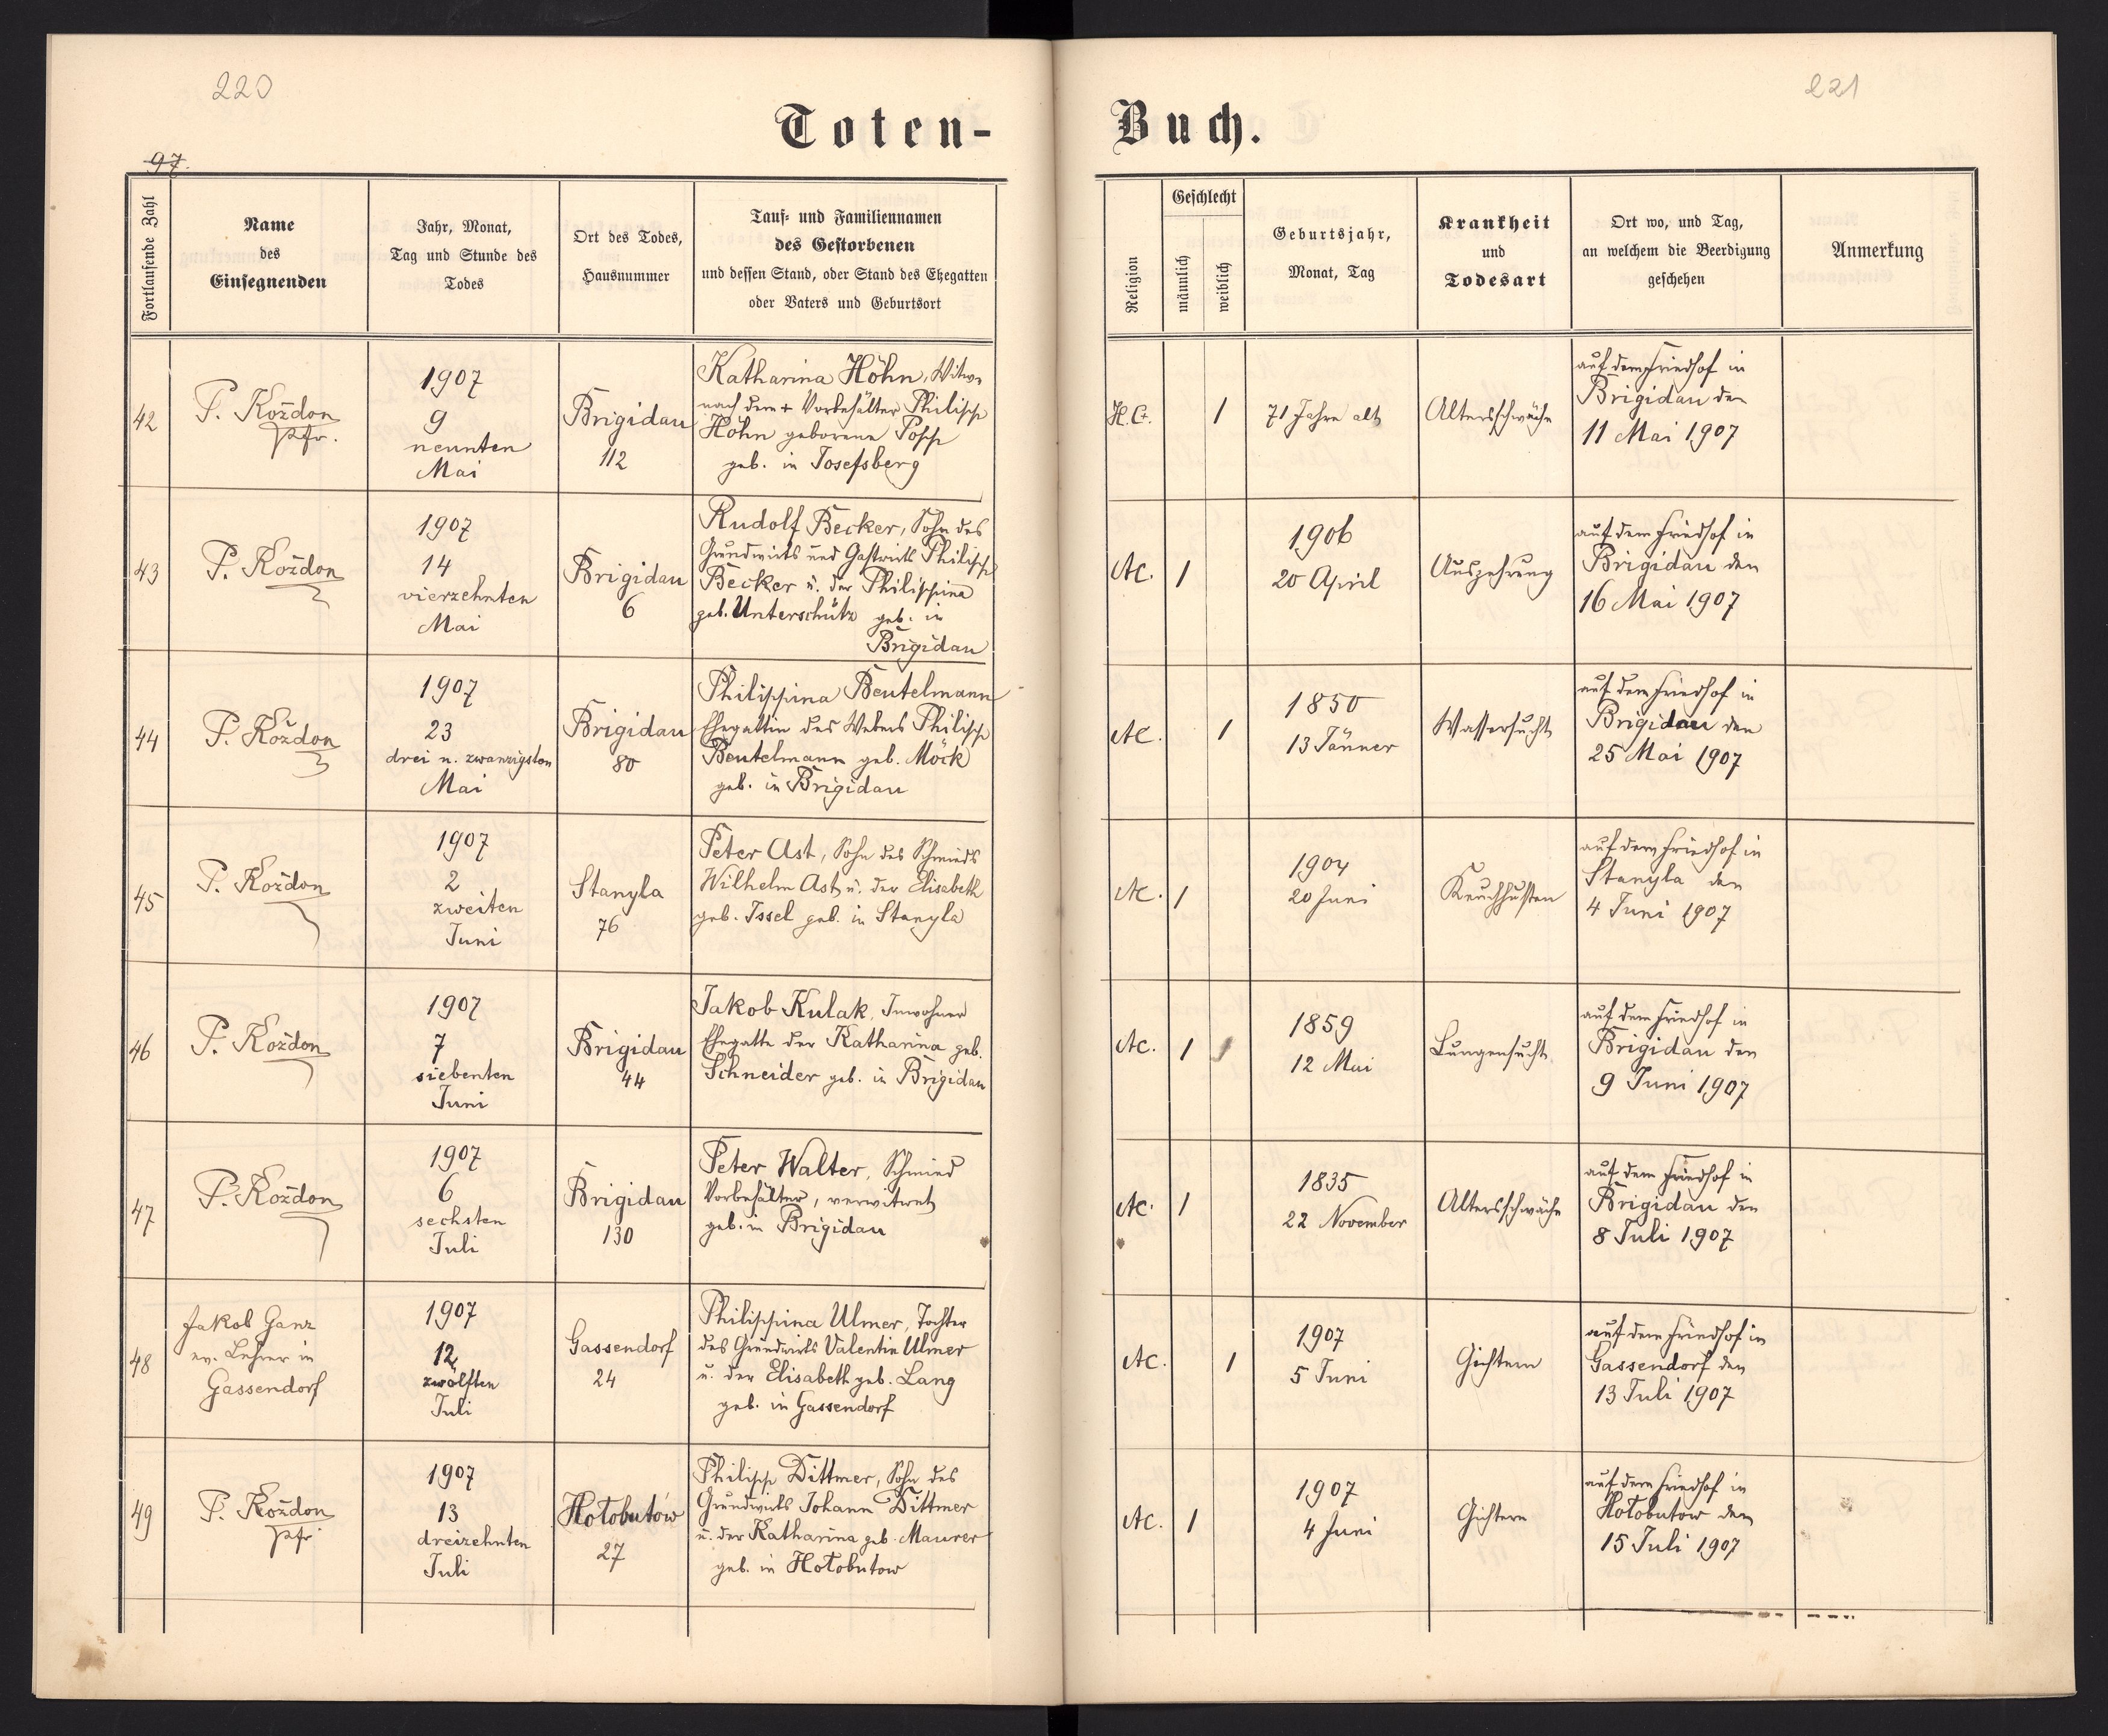 220
221
Toten-
Buch.
97.
Fortlaufende Zahl
Name
des
Einsegnenden
Jahr, Monat,
Tag und Stunde des
Todes
Ort des Todes,
Hausnummer
Tauf- und Familiennamen
des Gestorbenen
und dessen Stand, oder Stand des Ehegatten
oder Vaters und Geburtsort
Religion
Geschlecht
männlich
weiblich
Geburtsjahr,
Monat, Tag
Krankheit
und
Todesart
Ort wo, und Tag,
an welchem die Beerdigung
geschehen
Anmerkung
42
P. Kożdon
Pfr.
1907
9
neunten
Mai
Brigidau
112
Katharina Höhn, Witwe
nach dem + Vorbehälter Philipp
Höhn geborene Popp
geb. in Josefsberg
H.C.
1
71 Jahre alt
Altersschwäche
auf dem Friedhof in
Brigidau den
11 Mai 1907
43
P. Kożdon
1907
14
vierzehnten
Mai
Brigidau
6
Rudolf Becker, Sohn des
Grundwirts und Gastwirts Philipp
Becker u. der Philippina
geb. Unterschütz geb. in
Brigidau
AC.
1
1906
20 April
Auszehrung
auf dem Friedhof in
Brigidau den
16 Mai 1907
44
P. Kożdon
1907
23
drei u. zwanzigsten
Mai
Brigidau
80
Philippina Beutelmann
Ehegattin des Webers Philipp
Beutelmann geb. Möck
geb. in Brigidau
AC.
1
1850
13 Jänner
Wassersucht
auf dem Friedhof in
Brigidau den
25 Mai 1907
45
P. Kożdon
1907
2
zweiten
Juni
Stanyla
76
Peter Ast, Sohn des Schmieds
Wilhelm Ast u. der Elisabeth
geb. Issel geb. in Stanyla
AC.
1
1904
20 Juni
Keuchhusten
auf dem Friedhof in
Stanyla den
4 Juni 1907
46
P. Kożdon
1907
7
siebenten
Juni
Brigidau
44
Jakob Kulak, Inwohner
Ehegatte der Katharina geb.
Schneider geb. in Brigidau
AC.
1
1859
12 Mai
Lungensucht
auf dem Friedhof in
Brigidau den
9 Juni 1907
47
P. Kożdon
1907
6
sechsten
Juli
Brigidau
130
Peter Walter, Schmied
Vorbehälter, verwitwet
geb. in Brigidau
AC.
1
1835
22 November
Altersschwäche
auf dem Friedhof in
Brigidau den
8 Juli 1907
48
Jakob Ganz
ev. Lehrer in
Gassendorf
1907
12
zwölften
Juli
Gassendorf
24
Philippina Ulmer, Tochter
des Grundwirts Valentin Ulmer
u. der Elisabeth geb. Lang
geb. in Gassendorf
AC.
1
1907
5 Juni
Gichtern
auf dem Friedhof in
Gassendorf den
13 Juli 1907
49
P. Kożdon
Pfr.
1907
13
dreizehnten
Juli
Hołobutów
27
Philipp Dittmer, Sohn des
Grundwirts Johann Dittmer
u. der Katharina geb. Maurer
geb. in Hołobutow
AC.
1
1907
4 Juni
Gichtern
auf dem Friedhof in
Hołobutow den
15 Juli 1907